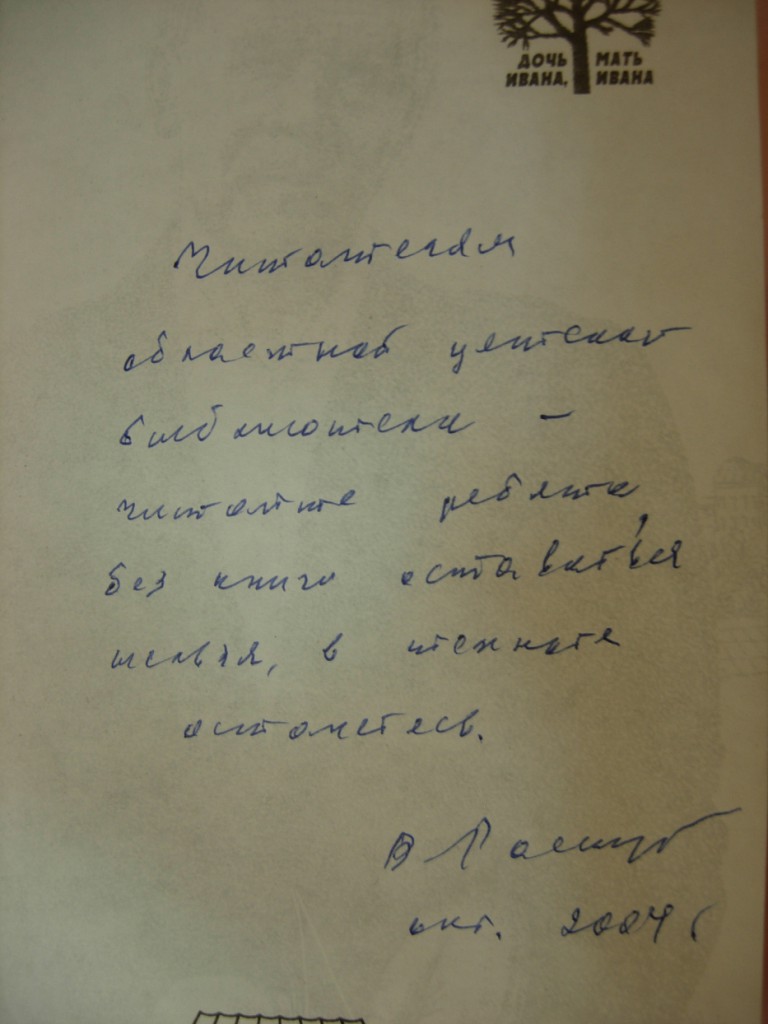 ДОЧЬ МАТЬ
ИВАНА, ИВАНА
Читателям
областной детской
библиотеки –
читайте ребята,
без книги оставаться
нельзя, в темноте
останетесь.
В Распут
окт. 2004 г